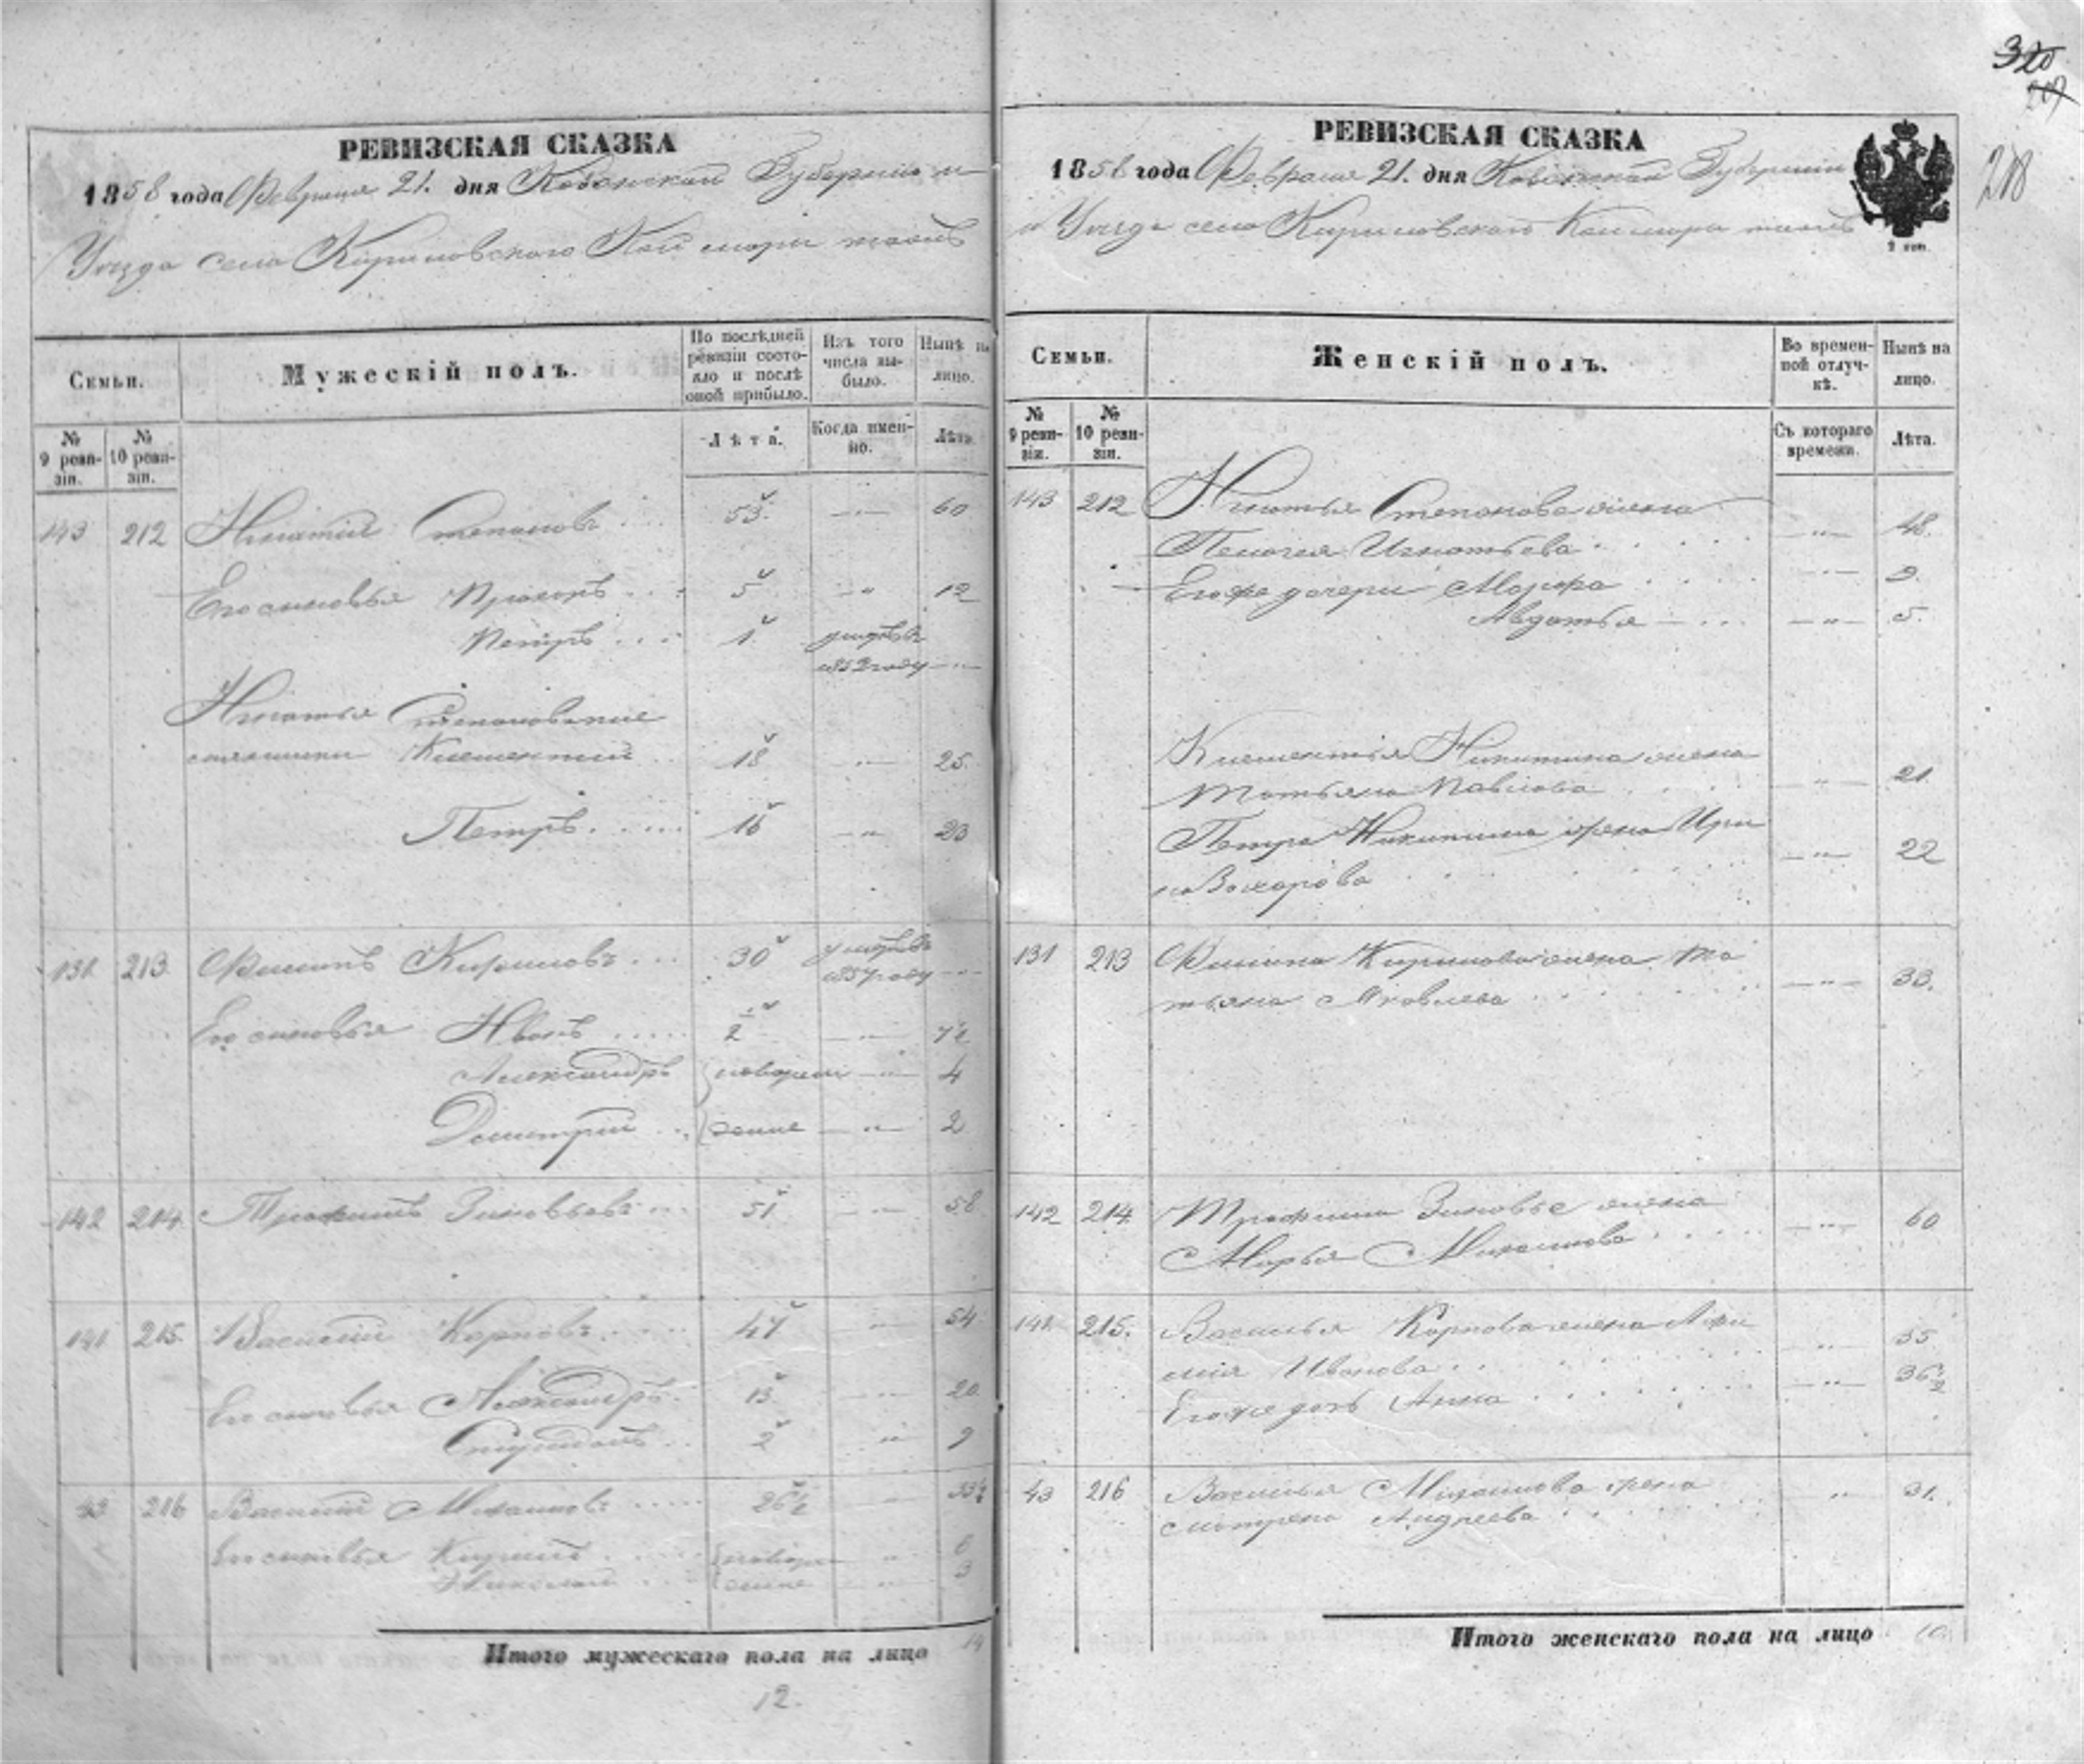 320
218
РЕВИЗСКАЯ СКАЗКА
1858 года Февраля 21. дня Казанской Губернии и
Уезда села Кириловского Кай мары тожъ
Семьи.
Мужескій полъ.
По послѣдней ревизіи состояло и послѣ оной прибыло.
Изъ того числа выбыло.
Нынѣ на лицо.
№ 9 ревизіи.
№ 10 ревизіи.
Лѣта.
Когда именно.
Лѣта.
143 212 Игнатій Степановъ 53. 60
Его сыновья 5 12
Петръ 1. умеръ въ
1852 году
Игнатья Степанова
Клементій 18 25.
Петръ. 16 23
131. 213. Филипъ Кириловъ 30 умеръ въ
1857 году
Его сыновья Иванъ 2
Александръ новорож 4
Дмитрій дение 2
142 214. Трофимъ Зиновьевъ 51 58
141 215. Василій Карповъ 47 54
Его сыновья Александръ. 13 20
Спиридонъ 2 9
43 216 Василій Михаиловъ 26½ 33½
Его сыновья Кирилъ новоро 6
Николай дение 3
Итого мужескаго пола на лицо 14
12.
РЕВИЗСКАЯ СКАЗКА
1858 года Февраля 21. дня Казанской Губернии
и Уезда села Кириловского Каимары тожъ
2 коп.
Семьи.
Женскій полъ.
Во временной отлучкѣ.
Нынѣ на лицо.
№ 9 ревизіи.
№ 10 ревизіи.
Съ котораго времени.
Лѣта.
143 212 Игнатья Степанова жена
Пелагея Игнатьева 48.
Его же дочери 9.
Авдотья 5.
Клементья Никитина жена
Татьяна Павлова 21.
Петра Никитина жена Ири
на Захарова 22
131 213 Филипа Кирилова жена Та
тьяна Яковлева 33.
142 214. Трофима Зиновье жена
Марья Михаилова 60
141. 215. Василья Карпова жена
Иванова 55
Его же дочь Анна
43 216 Василья Михаилова жена
Андреева 31.
Итого женскаго пола на лицо 10.